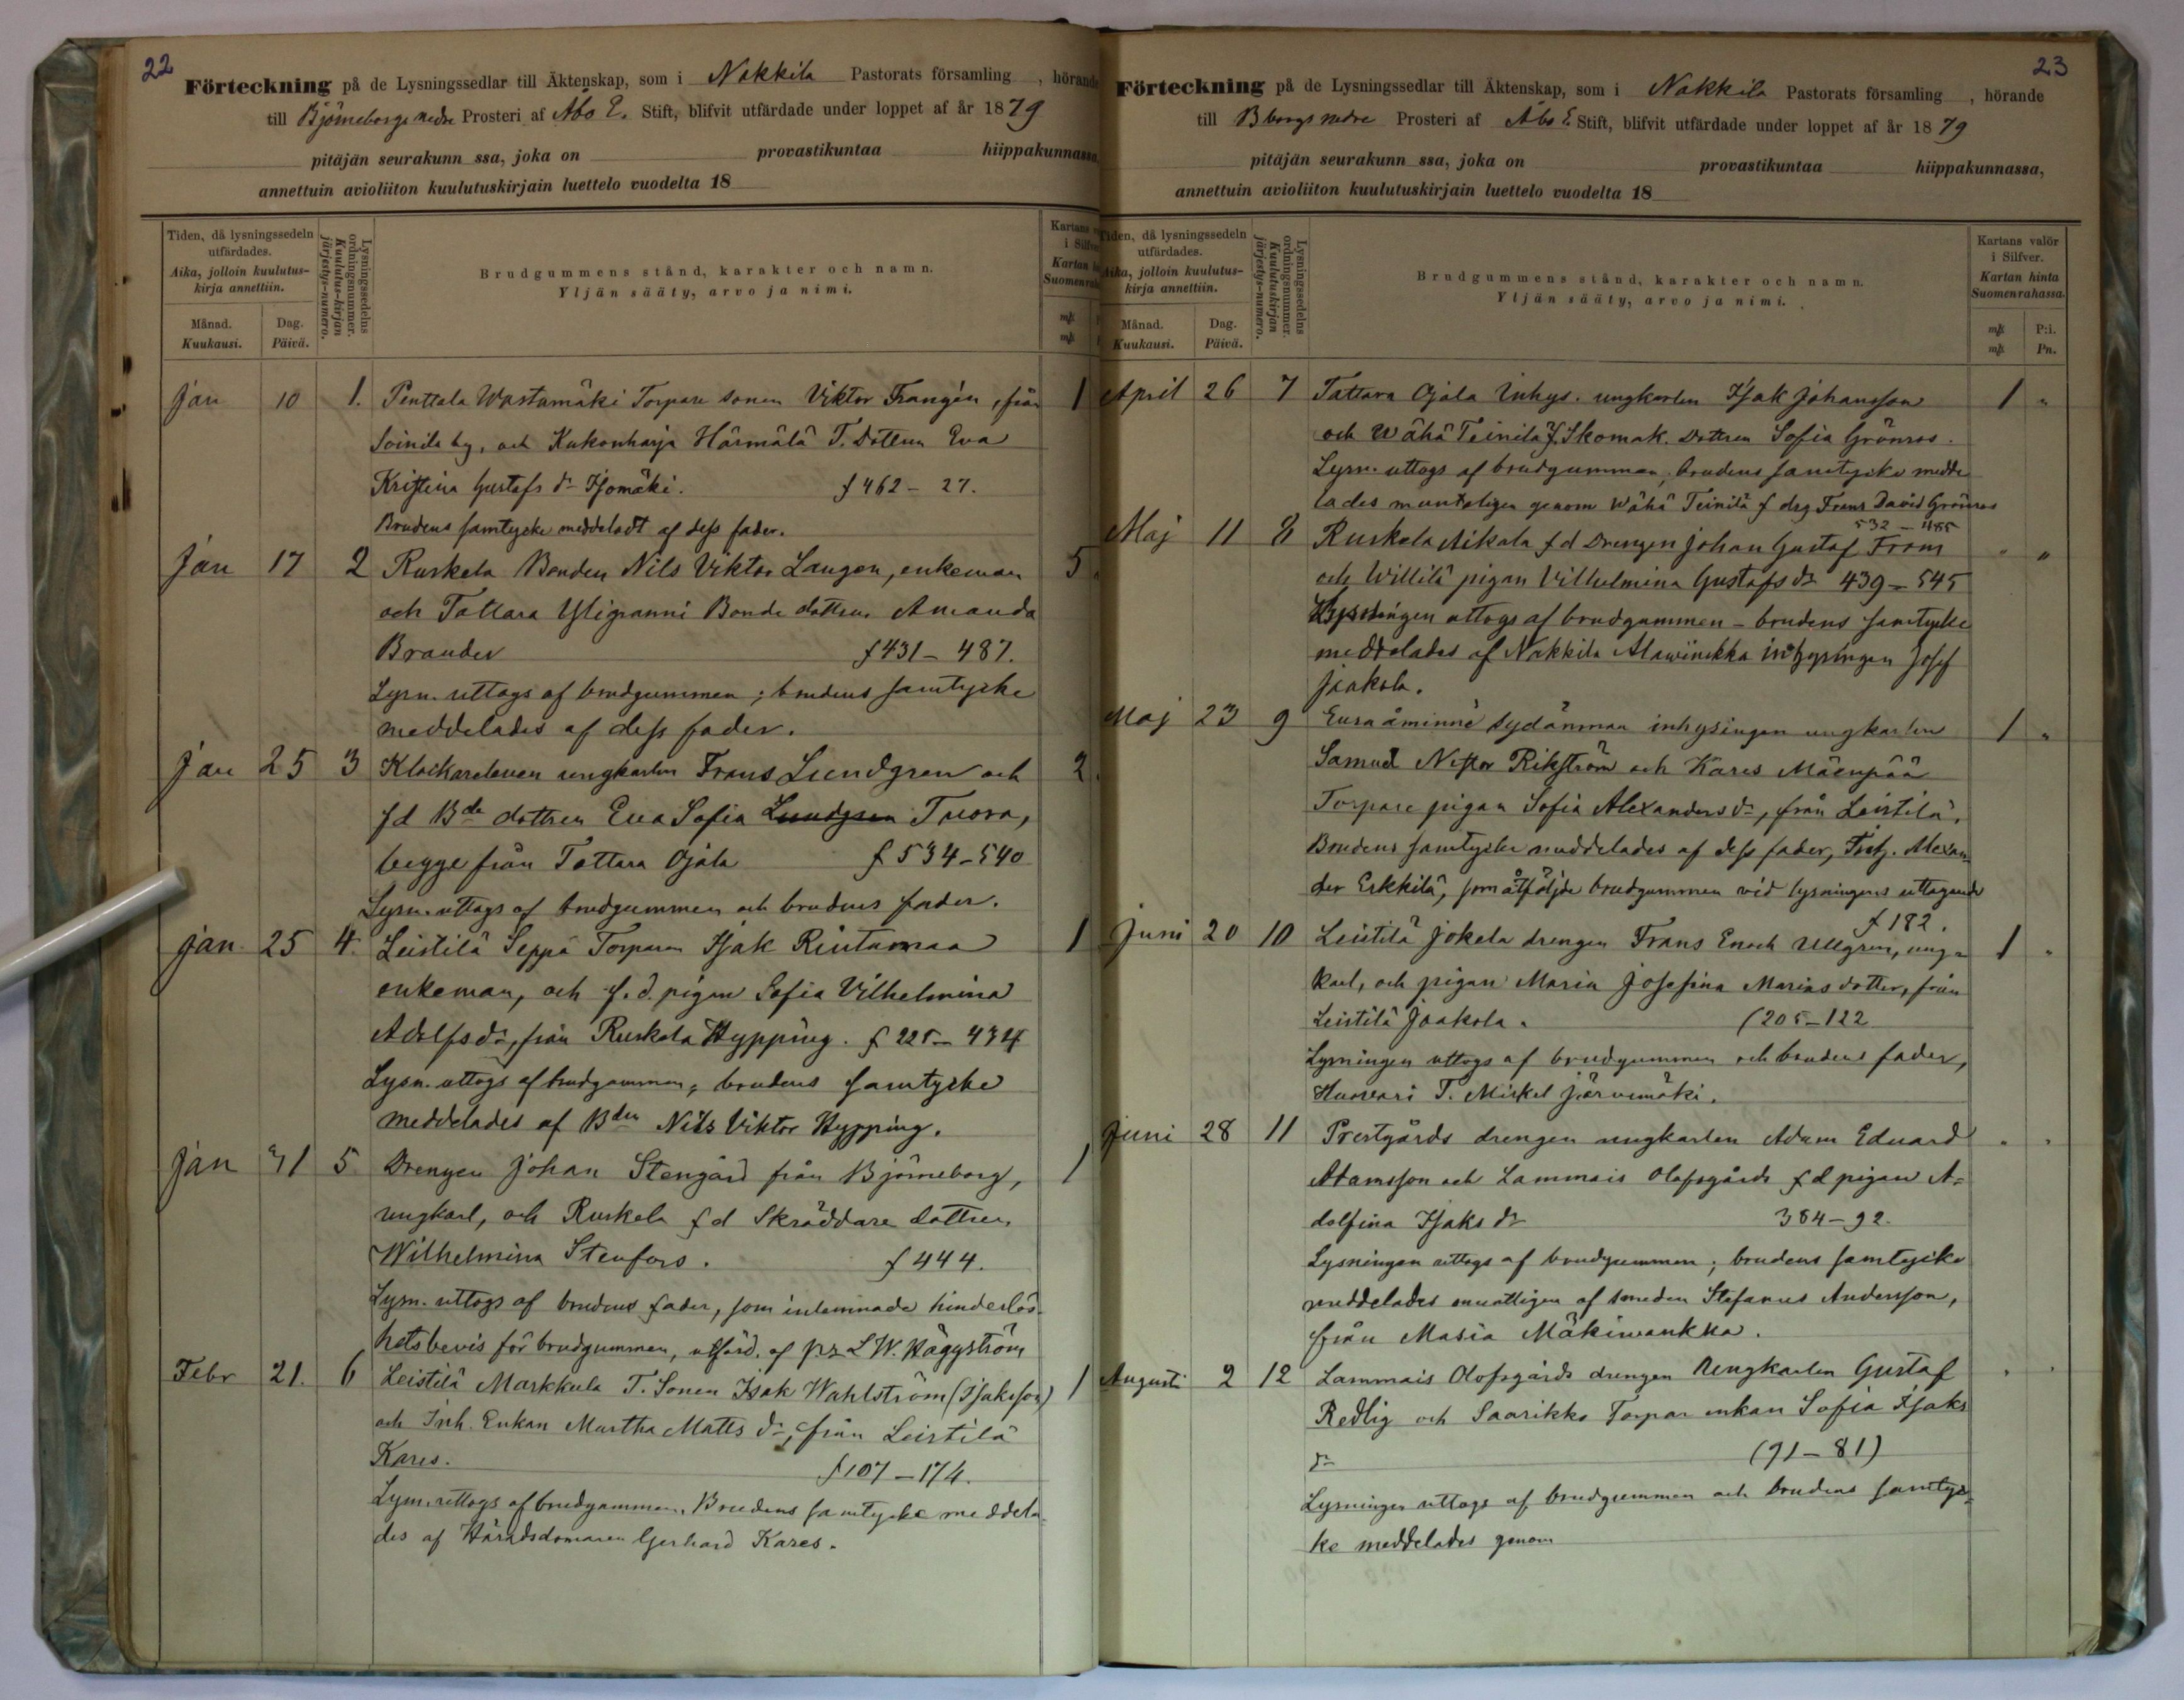 22
Förteckning på de Lysningssedlar till Äktenskap, som i Nakkila Pastorats församling , hörande
till Björneborgs nedre Prosteri af Åbo E. Stift, blifvit utfärdade under loppet af år 1879
pitäjän seurakunn ssa, joka on provastikuntaa hiippakunnassa,
annettuin avioliiton kuulutuskirjain luettelo vuodelta 18
Tiden, då lysningssedeln
utfärdades.
Aika, jolloin kuulutus-
kirja annettiin.
Månad.
Kuukausi.
Dag.
Päivä.
Lysningssedelns
ordningsnummer.
Kuulutus-kirjan
järjestys-numero.
Brudgummens stånd, karakter och namn.
Yljän sääty, arvo ja nimi.
Kartans
i Silfver
Kartan
Suomenrah
mk
mk
Jan 10 1. Penttala Wastamäki Torpare sonen Viktor Frangén, från 1
Soinila by, och Kukonharja Härmälä T. Dottren Eva
Kristina Gustafs dr Isomäki. f 462 - 27.
Brudens samtycke meddeladt af dess fader.
Jan 17 2 Ruskela Bonden Nils Viktor Laugen, enkeman 5
och Tattara Yligranni Bonde dottren Amanda
Brander f 431 - 487.
Lysn. uttogs af brudgummen; brudens samtycke
meddelades af dess fader.
Jan 25 3 Klockareleven ungkarlen Frans Lundgren och 2
fd Bde dottren Eva Sofia Lundgren Tuora,
begge från Tattara Ojala f 534-540
Lysn. uttogs af brudgummen och brudens fader.
Jan 25 4. Leistilä Seppä Torparen Isak Rintamaa 1
enkeman, och f.d. pigan Sofia Vilhelmina
Adolfs dr, från Ruskela Hypping. f 225 - 434
Lysn. uttogs af brudgummen; brudens samtycke
meddelades af Bden Nils Viktor Hypping.
Jan 31 5 Drengen Johan Stengård från Björneborg, 1
ungkarl, och Ruskela fd Skräddare dottren
Wilhelmina Stenfors. f 444.
Lysn. uttogs af brudens fader, som inlemnade hinderlös-
hetsbevis för brudgummen, utfärd. af L W. Häggström
Febr 21. 6 Leistilä Markkula T. Sonen Isak Wahlström (Isaksson) 1
och Inh. Enkan Martha Matts dr, från Leistilä
Kares. f 107 - 174.
Lysn. uttogs af brudgummen. Brudens samtycke meddela-
des af Häradsdomaren Gerhard Kares.
23
Förteckning på de Lysningssedlar till Äktenskap, som i Nakkila Pastorats församling , hörande
till Bborgs nedre Prosteri af Åbo E. Stift, blifvit utfärdade under loppet af år 1879
pitäjän seurakunn ssa, joka on provastikuntaa hiippakunnassa,
annettuin avioliiton kuulutuskirjain luettelo vuodelta 18
Tiden, då lysningssedeln
utfärdades.
Aika, jolloin kuulutus-
kirja annettiin.
Månad.
Kuukausi.
Dag.
Päivä.
Lysningssedelns
ordningsnummer.
Kuulutuskirjan
järjestys-numero.
Brudgummens stånd, karakter och namn.
Yljän sääty, arvo ja nimi.
Kartans valör
i Silfver.
Kartan hinta
Suomenrahassa.
mk P:i.
mk Pn.
April 26 7 Tattara Ojala Inhys. ungkarlen Isak Johansson 1 "
och Wähä Teinilä f. Skomak. Dottren Sofia Grönroos.
Lysn. uttogs af brudgummen, brudens samtycke medde
lades muntligen genom Wähä Teinilä f drg Frans David Grönroos
532 - 455
Maj 11 8 Ruskela Mikola f d Drengen Johan Gustaf From " "
och Willilä pigan Vilhelmina Gustafs dr 439 - 545
Lysningen uttogs af brudgummen - brudens samtycke
meddelades af Nakkila Alawiinikka inhysingen Josef
Jaakola.
Maj 23 9 Euraåminne Sydänmaa inhysingen ungkarlen 1 "
Samuel Nestor Rikström och Kares Mäenpää
Torpare pigan Sofia Alexanders dr, från Leistilä,
Brudens samtycke meddelades af dess fader, Alexan-
der Erkkilä, som åtföljde brudgummen vid lysningens uttagande
f 182.
Juni 20 10 Leistilä Jokela drengen Frans Enoch Ullgren, ung= 1 "
karl, och pigan Maria Josefina Marias dotter, från
Leistilä Jaakola. (205-122
Lysningen uttogs af brudgummen och brudens fader,
T. Mickel Järvimäki.
Juni 28 11 Prestgårds drengen ungkarlen Adam Eduard " "
Adamsson och Lammais Olofsgårds f d pigan A=
dolfina Isaks dr 384 - 92.
Lysningen uttogs af brudgummen; brudens samtycke
meddelades muntligen af smeden Stefanus Andersson,
från Masia Mäkiwankka.
Augusti 2 12 Lammais Olofsgårds drengen Ungkarlen Gustaf " "
Redlig och Saarikko Torpar enkan Sofia Isaks
dr (91 - 81)
Lysningen uttogs af brudgummen och brudens samtyc=
ke meddelades genom